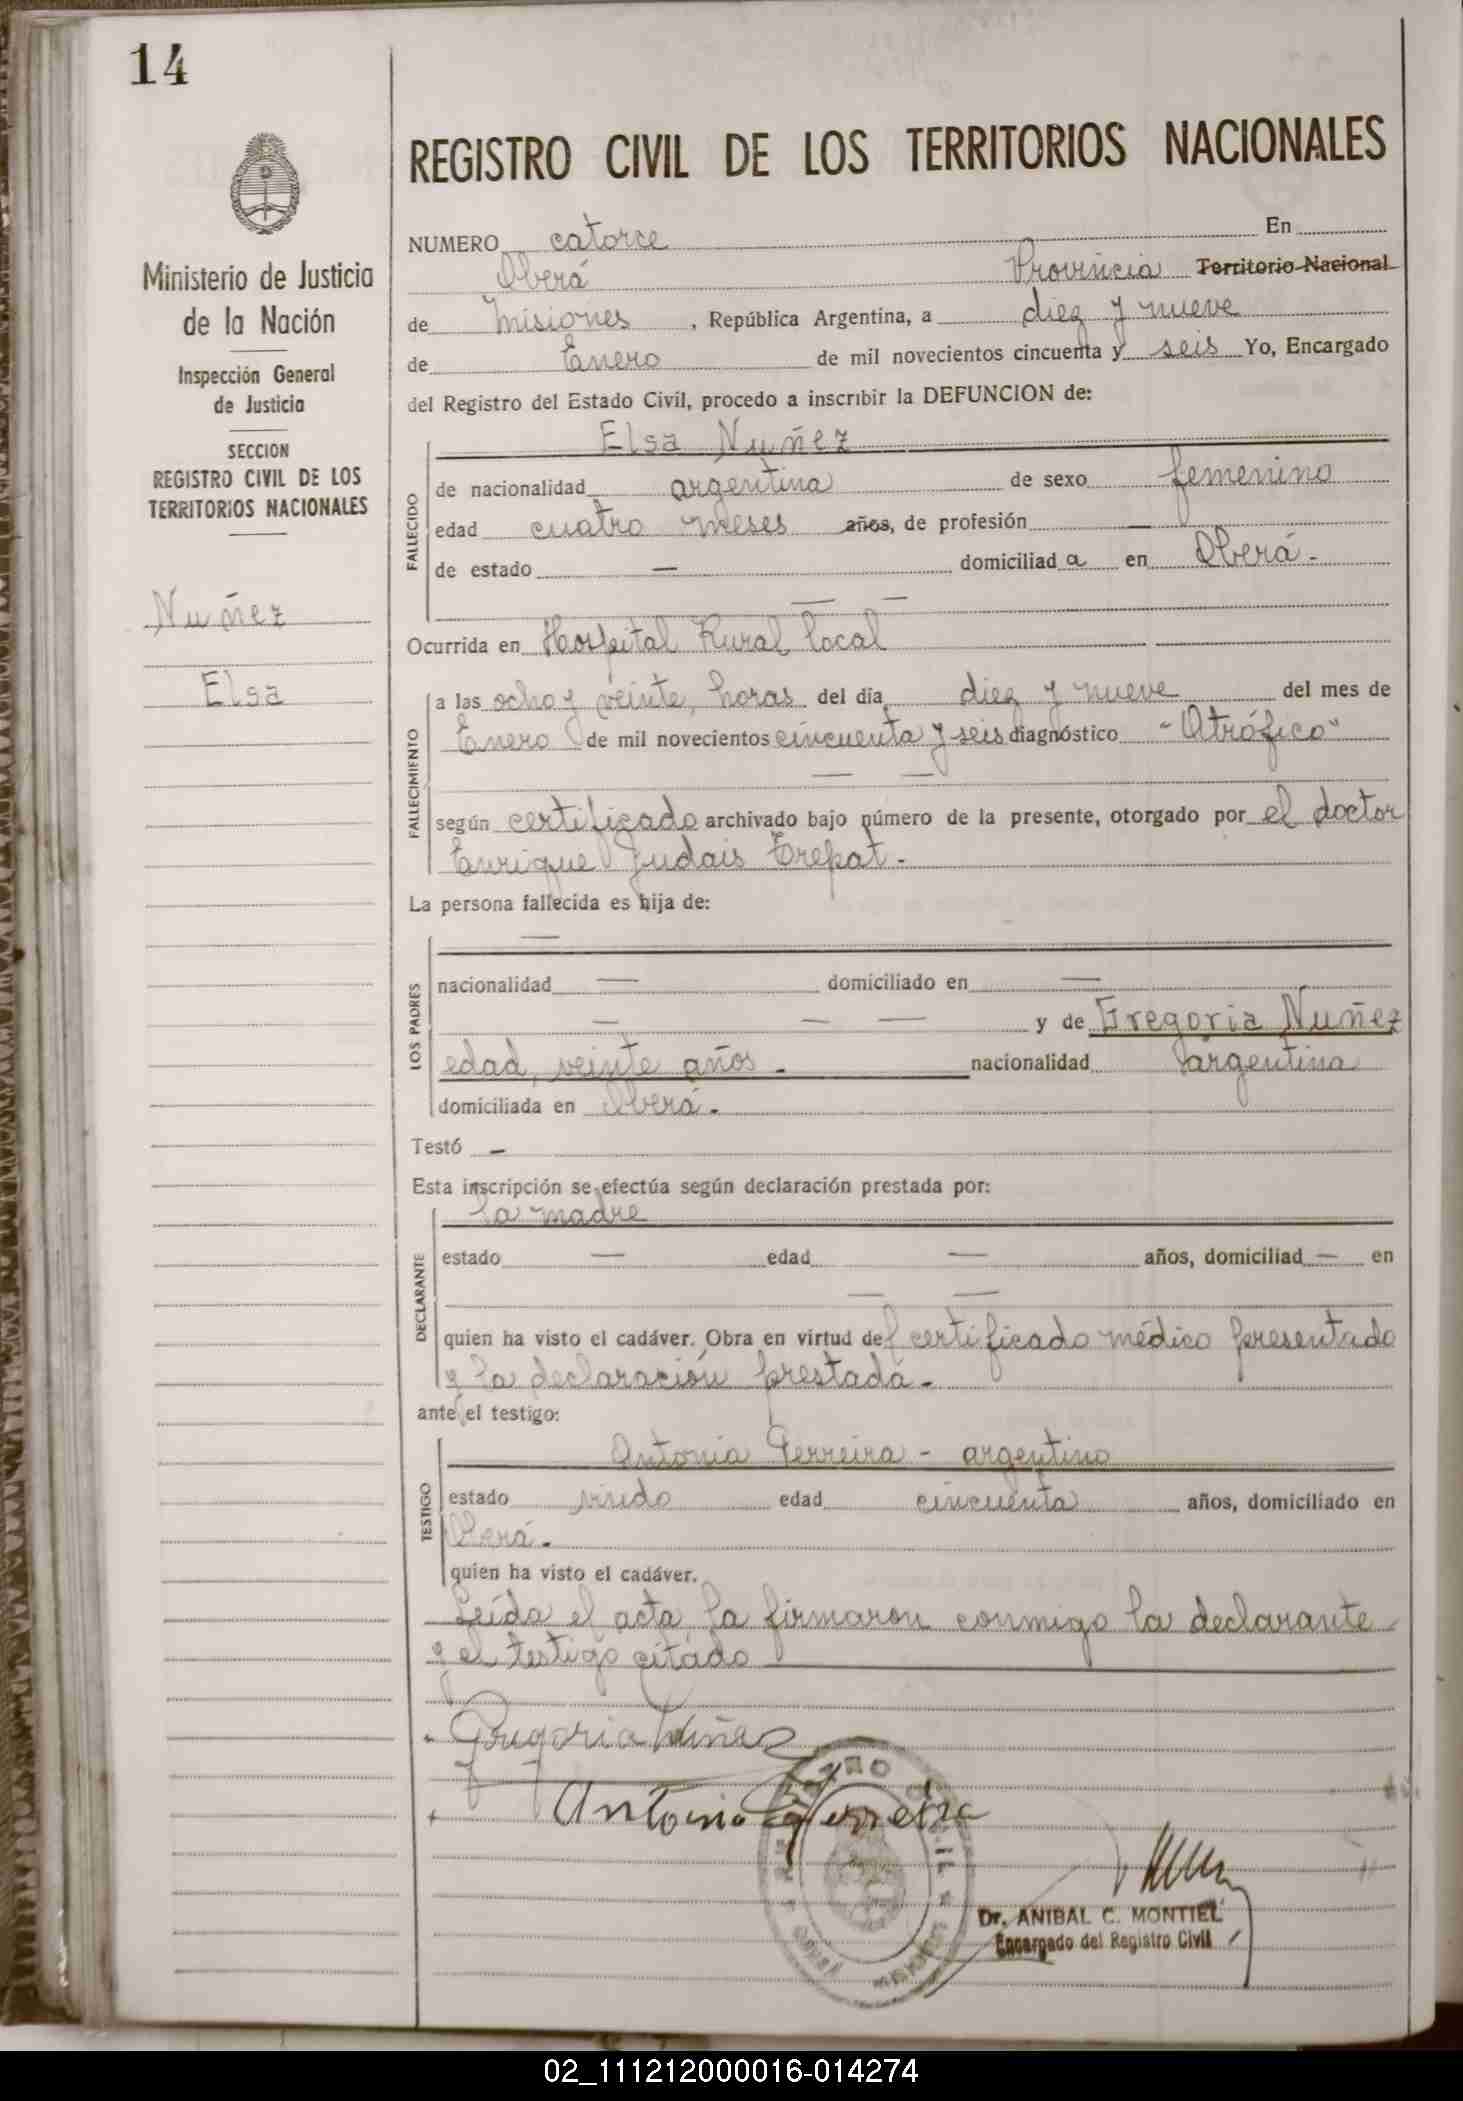 14
Ministerio de Justicia
de la Nación
Inspección General
de Justicia
SECCION
REGISTRO CIVIL DE LOS
TERRITORIOS NACIONALES
Nuñez
Elsa
REGISTRO CIVIL DE LOS TERRITORIOS NACIONALES
NUMERO catorce En
Oberá Provincia Territorio Nacional
de Misiones, República Argentina, a diez y nueve
de Enero de mil novecientos cincuenta y seis Yo, Encargado
del Registro del Estado Civil, procedo a inscribir la DEFUNCION de:
FALLECIDO
Elsa Nuñez
de nacionalidad argentina de sexo femenino
edad cuatro meses años, de profesión —
de estado — domiciliad a en Oberá -
— —
Ocurrida en Hospital Rural local
FALLECIMIENTO
a las ocho y veinte, horas del día diez y nueve del mes de
Enero de mil novecientos cincuenta y seis diagnóstico - "Atrófico"
— —
según certificado archivado bajo número de la presente, otorgado por el doctor
Enrique Judais Trepat -
La persona fallecida es hija de:
LOS PADRES
—
nacionalidad — domiciliado en —
— — — y de Gregoria Nuñez
edad, veinte años - nacionalidad argentina
domiciliada en Oberá -
Testó —
Esta inscripción se efectúa según declaración prestada por:
DECLARANTE
la madre
estado — edad — años, domiciliad — en
— —
quien ha visto el cadáver. Obra en virtud del certificado médico presentado
y la declaración prestada -
ante el testigo:
TESTIGO
Antonio Ferreira - argentino
estado viudo edad cincuenta años, domiciliado en
Oberá -
quien ha visto el cadáver.
Leída el acta, la firmaron conmigo la declarante
y el testigo citado
Gregoria Nuñez
Antonio Ferreira
REGISTRO CIVIL
OBERA MISIONES
Dr. ANIBAL C. MONTIEL
Encargado del Registro Civil
02_111212000016-014274